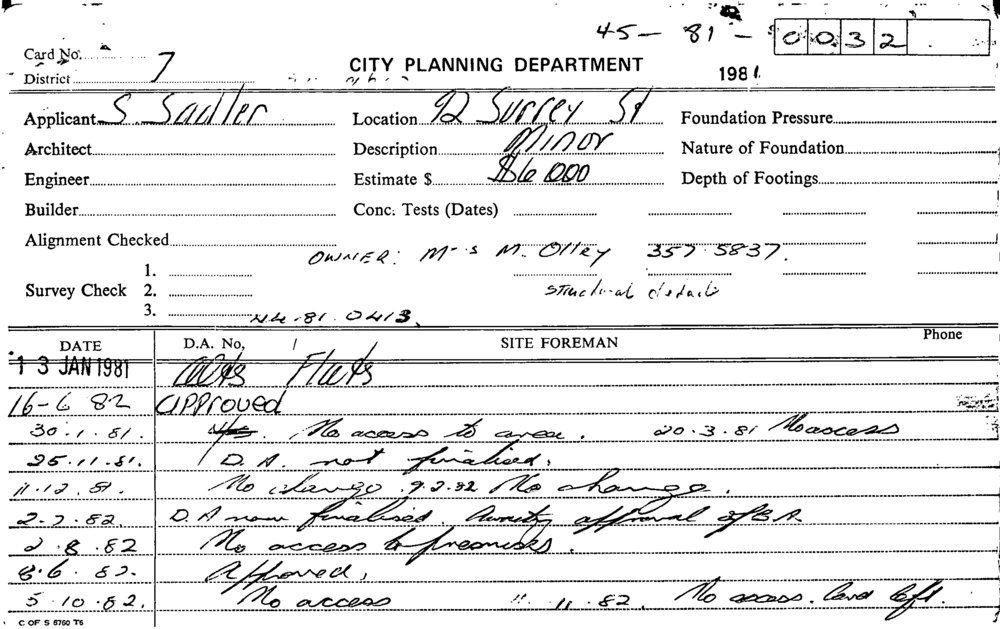 45 - 81 - 0032
Card No.
District 7 CITY PLANNING DEPARTMENT 1981
Applicant S. Sadler Location 92 Surrey St Foundation Pressure
Architect Description Minor Nature of Foundation
Engineer Estimate $ $6 000 Depth of Footings
Builder Conc. Tests (Dates)
Alignment Checked OWNER: Mrs M. Olley 357 5837.
1.
Survey Check 2. structural details
3. 44.81.0413.
DATE D.A. No, SITE FOREMAN Phone
13 JAN 1981 Flats
16-6 82 approved
30.1.81. No access to area. 20.3.81 No access
25.11.81. D.A. not finalised.
11.12.81. No change 9.2.82 No change.
2-7.82. D.A now finalised. Awaiting approval of B.A.
2.8.82 No access to premises.
8.6.82. Approved,
5.10.82. No access 11.11.82. No access. Card left.
C OF S 8760 T6